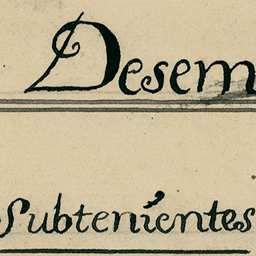 Desem
Subteníentes